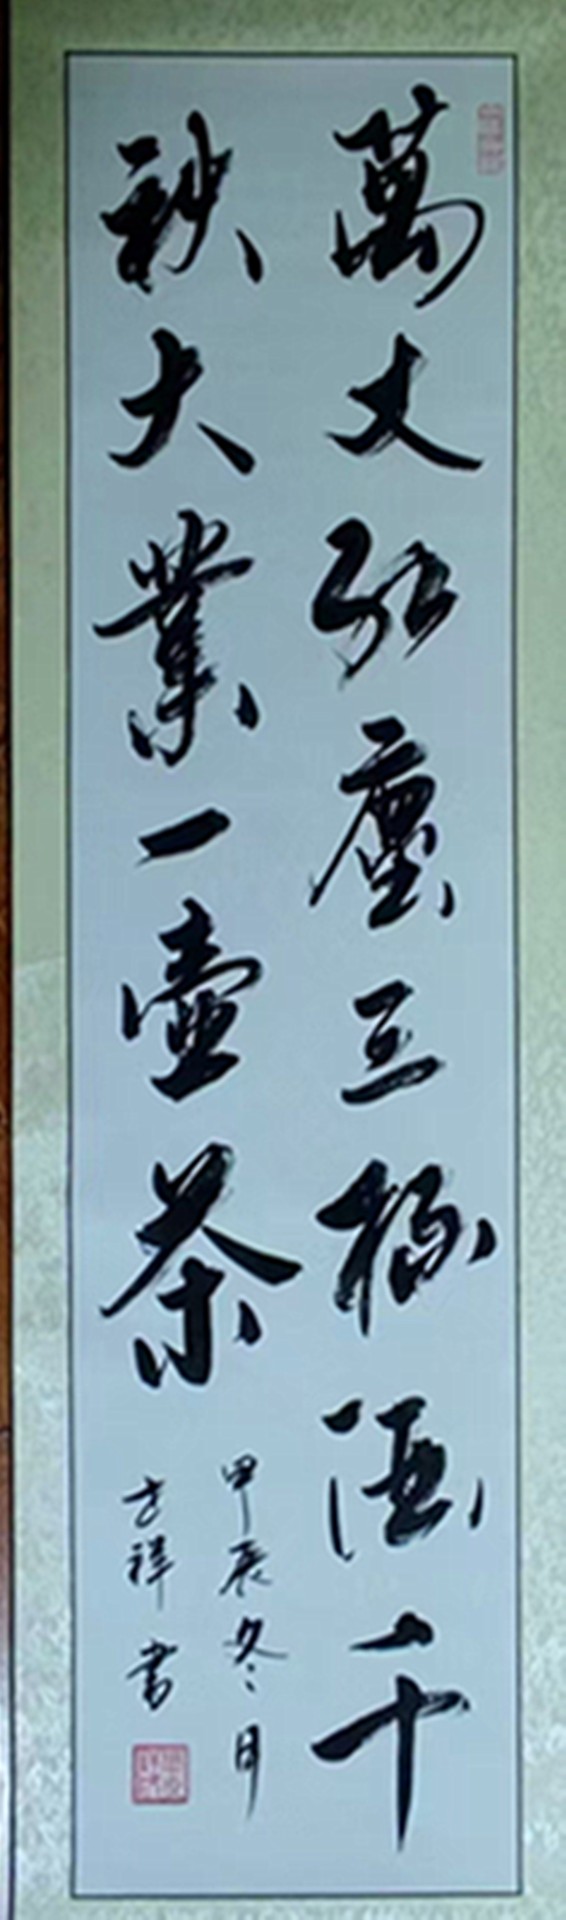 萬丈紅塵三杯酒千
秋大業一壺茶
甲辰冬月
祥書